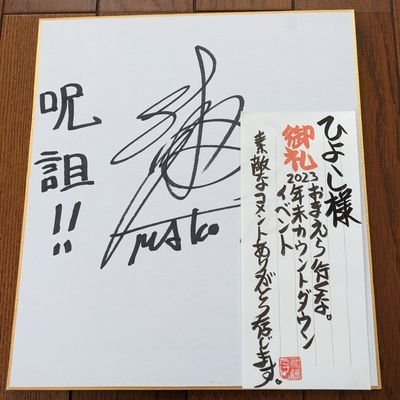 呪詛!!
Mako
ひよし様
御礼
おまえら行くな。
2023年末カウントダウン
イベント
素敵なコメントありがとう存じます。